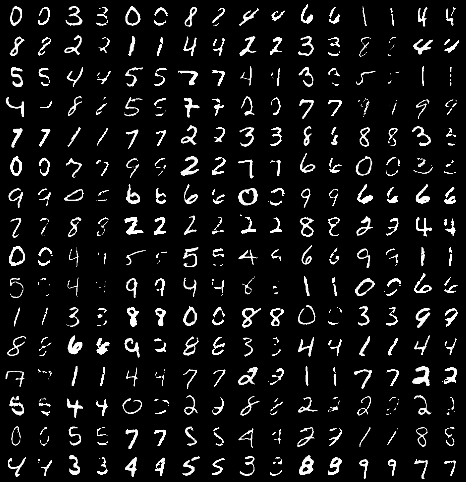 0 0 3 3 0 0 8 4 4 6 6 1 1 4 4
8 8 2 2 1 1 4 4 2 2 3 3 8 8 4 4
5 5 4 4 5 5 7 7 4 4 3 3 5 1 1
4 8 8 5 5 7 7 2 2 7 7 9 9 9
7 7 1 1 7 7 2 2 3 3 8 8 8 8 3 3
0 0 7 7 9 9 2 2 7 7 6 6 0 0 3 3
9 9 0 0 6 6 6 6 0 0 9 9 6 6 6 6
7 7 8 8 2 2 2 2 2 2 8 8 2 2 4 4
0 0 4 5 5 5 5 4 4 6 6 9 9 1 1
5 4 9 9 4 4 6 1 1 0 0 6 6
1 1 3 3 8 8 0 0 8 8 0 0 3 3 9 9
8 8 6 6 9 8 8 3 3 4 4 1 1 4 4
7 1 1 4 4 7 7 2 2 1 1 7 7 2 2
5 5 4 4 0 0 2 2 8 8 2 2 2 2 2 2
0 0 5 5 7 7 5 5 4 4 2 2 1 1 8 8
4 4 3 3 4 4 5 5 3 3 8 8 9 9 7 7